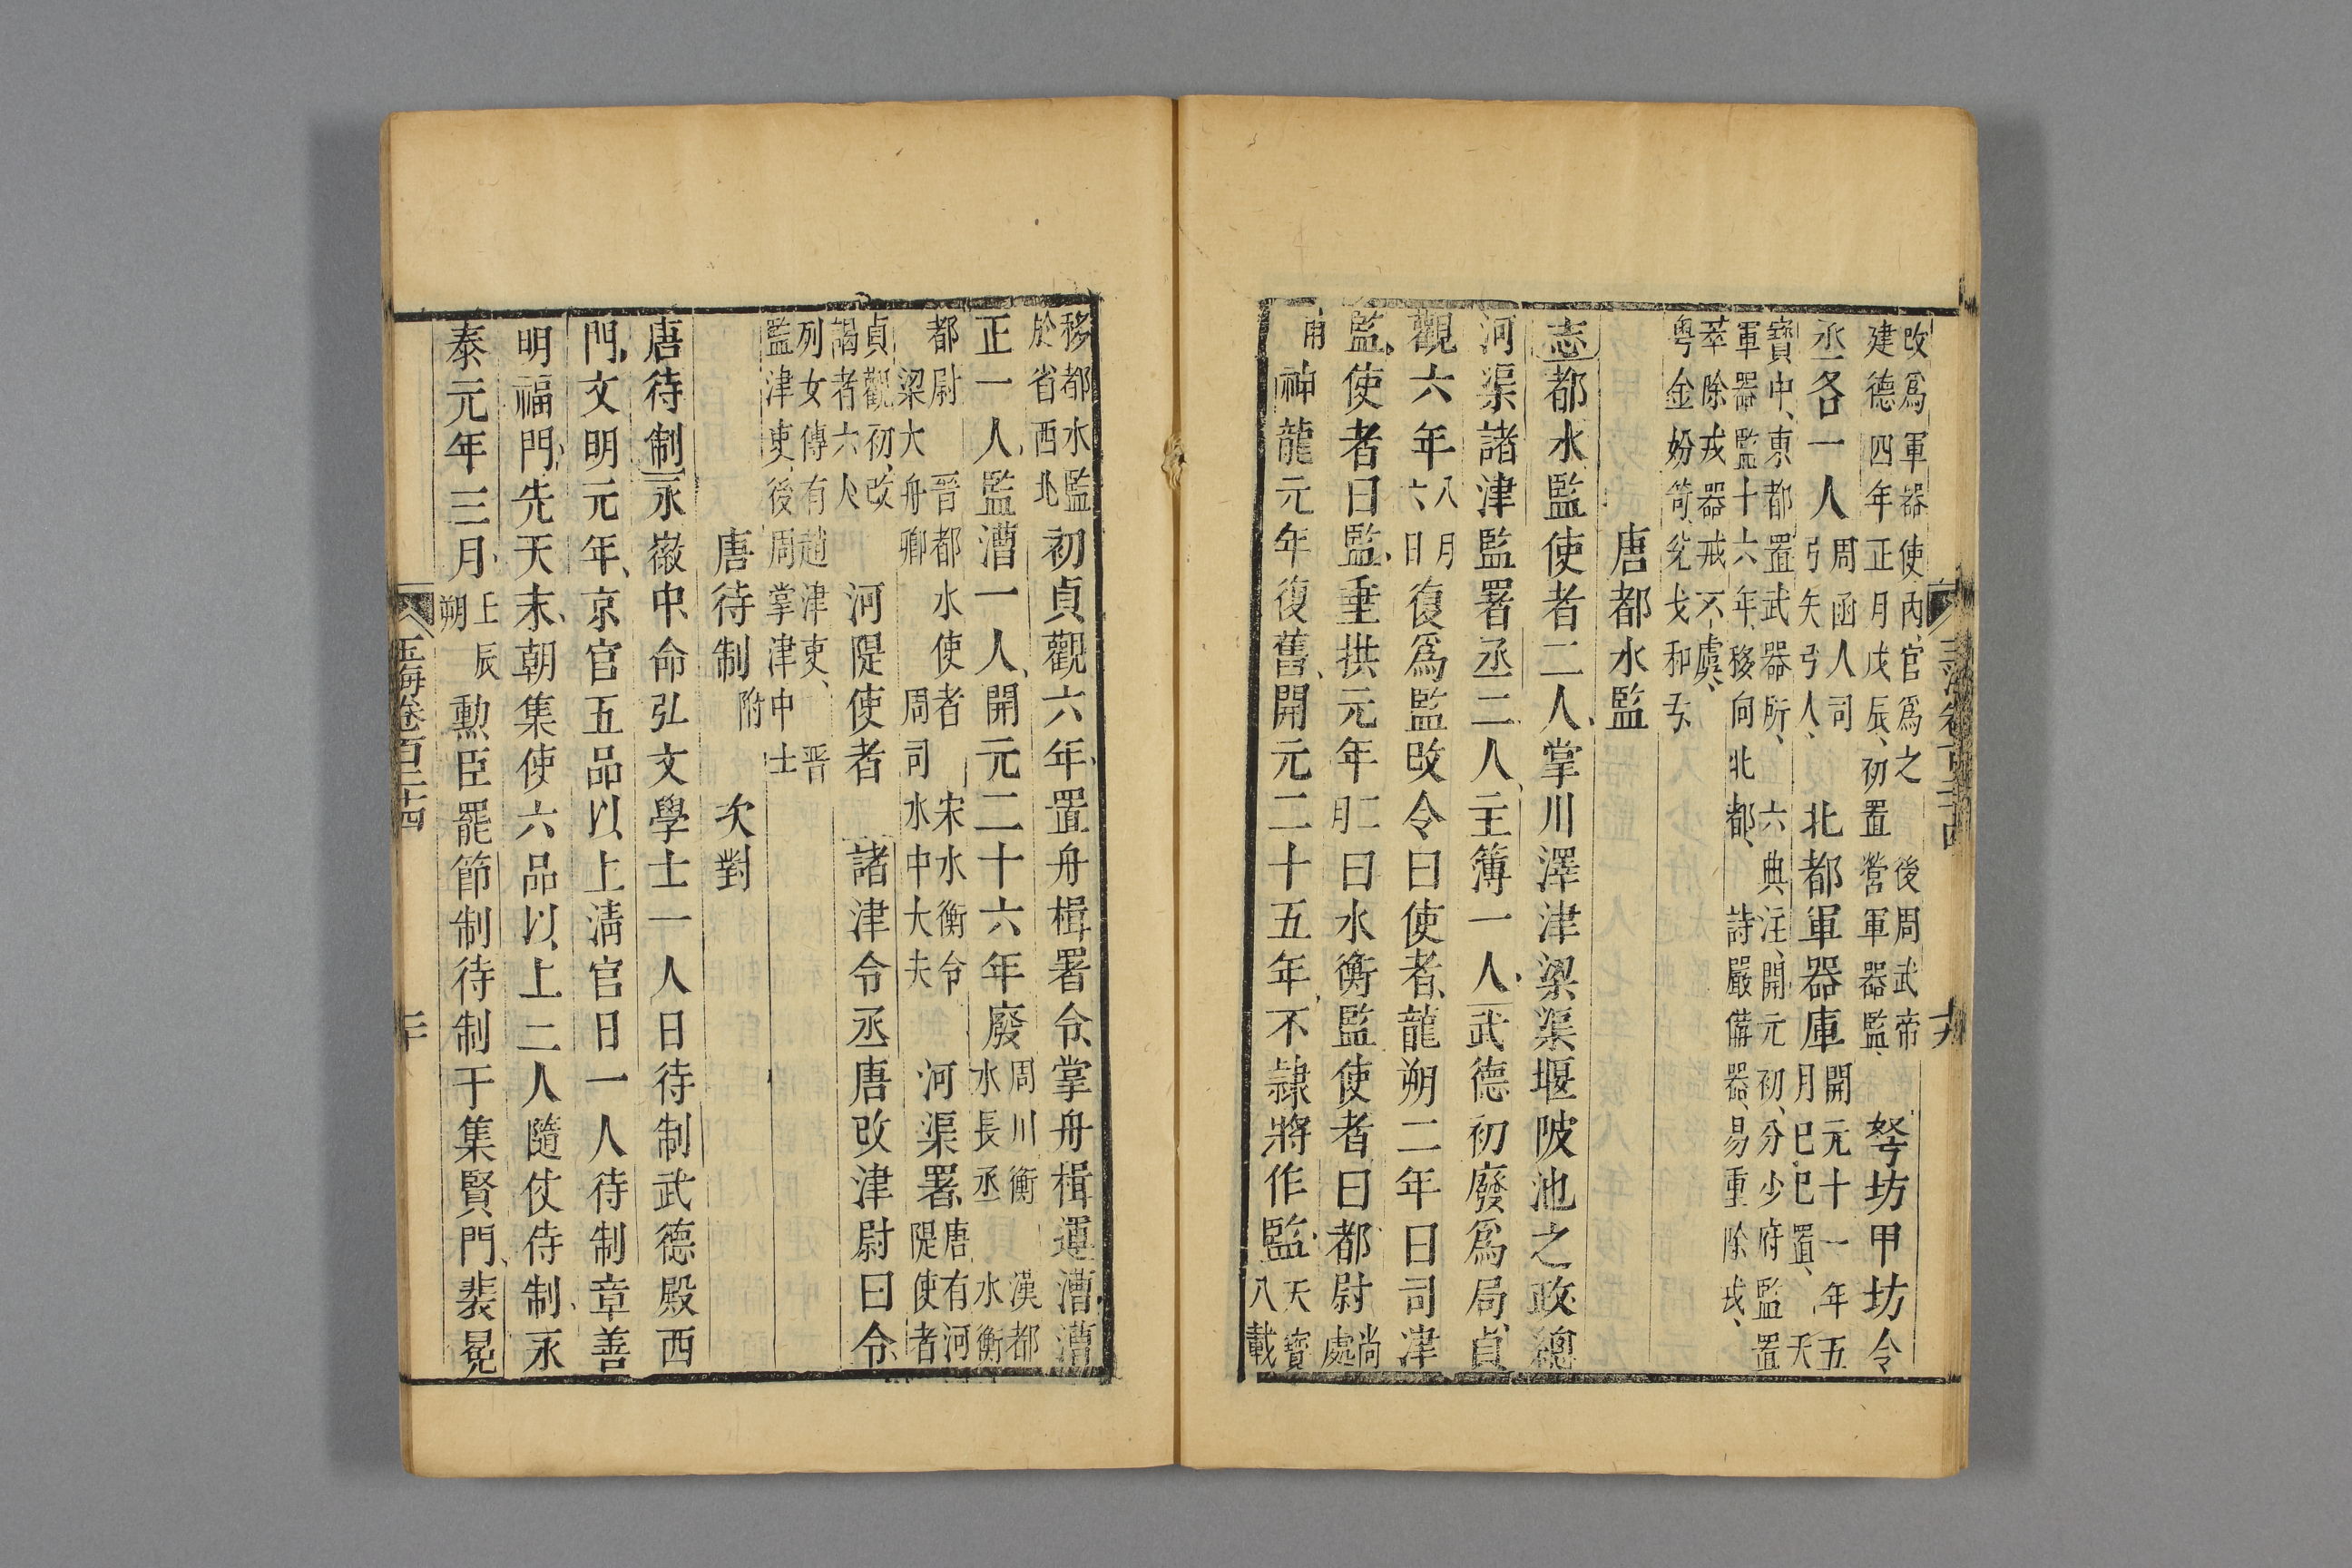 改爲軍器使內官爲之 後周武帝
建德四年正月戊辰初置營軍器監
弩坊甲坊令
丞各一人
周函人司
弓矢弓人
北都軍器庫
開元十一年五
月巳巳置天
寶中東都置武器所 六典注開元初分少府監置
軍器監十六年移向北都 詩嚴備器易重除戎
萃除戎器戒不虞
粤金妢笴兊戈和弓
唐都水監
志都水監使者二人掌川澤津梁渠堰陂池之政總
河渠諸津監署丞二人主簿一人武德初廢爲局貞
觀六年
八月
六日
復爲監改令曰使者龍朔二年曰司津
監使者曰監垂拱元年
二
月
曰水衡監使者曰都尉
尚
處
甫
神龍元年復舊開元二十五年不隷將作監
天寶
八載
玉海卷百二十四
十九
移都水監
於省西北
初貞觀六年置舟楫署令掌舟楫運漕漕
正一人監漕一人開元二十六年廢
周川衡 漢都
水長丞 水衡
都尉 晉都水使者 宋水衡令
梁大舟卿 周司水中大夫
河渠署
唐有河
隄使者
貞觀初改
謁者六人
河隄使者 諸津令丞唐改津尉曰令
列女傳有趙津吏 晋
監津吏後周掌津中士
唐待制
附
次對
唐待制永徽中命弘文學士一人日待制武德殿西
門文明元年京官五品以上淸官日一人待制章善
明福門先天末朝集使六品以上二人隨仗待制永
泰元年三月
上辰
朔
勲臣罷節制待制于集賢門裴冕
玉海卷百二十四
二十